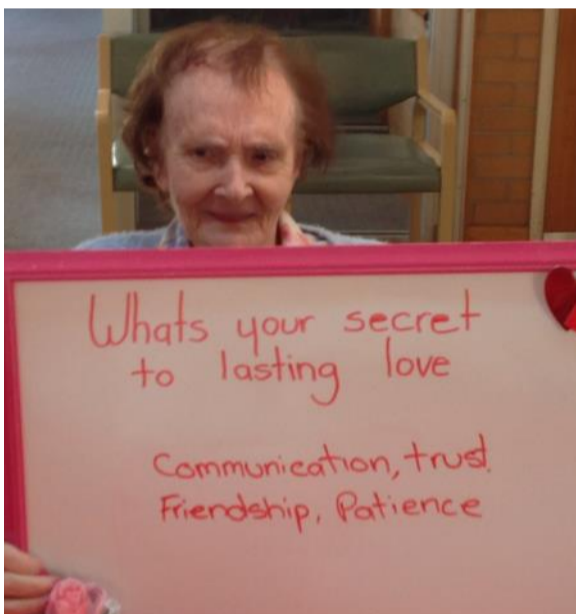 Whats your secret
to lasting love
Communication, trust.
Friendship, Patience